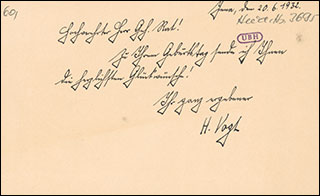 601
Jena, den 20.6.1932.
Heid. Hs. 3695
Hochverehrter Herr Geh. Rat!
UBH
Zu Ihrem Geburtstag sende ich Ihnen
die herzlichsten Glückwünsche!
Ihr ganz ergebener
H. Vogt